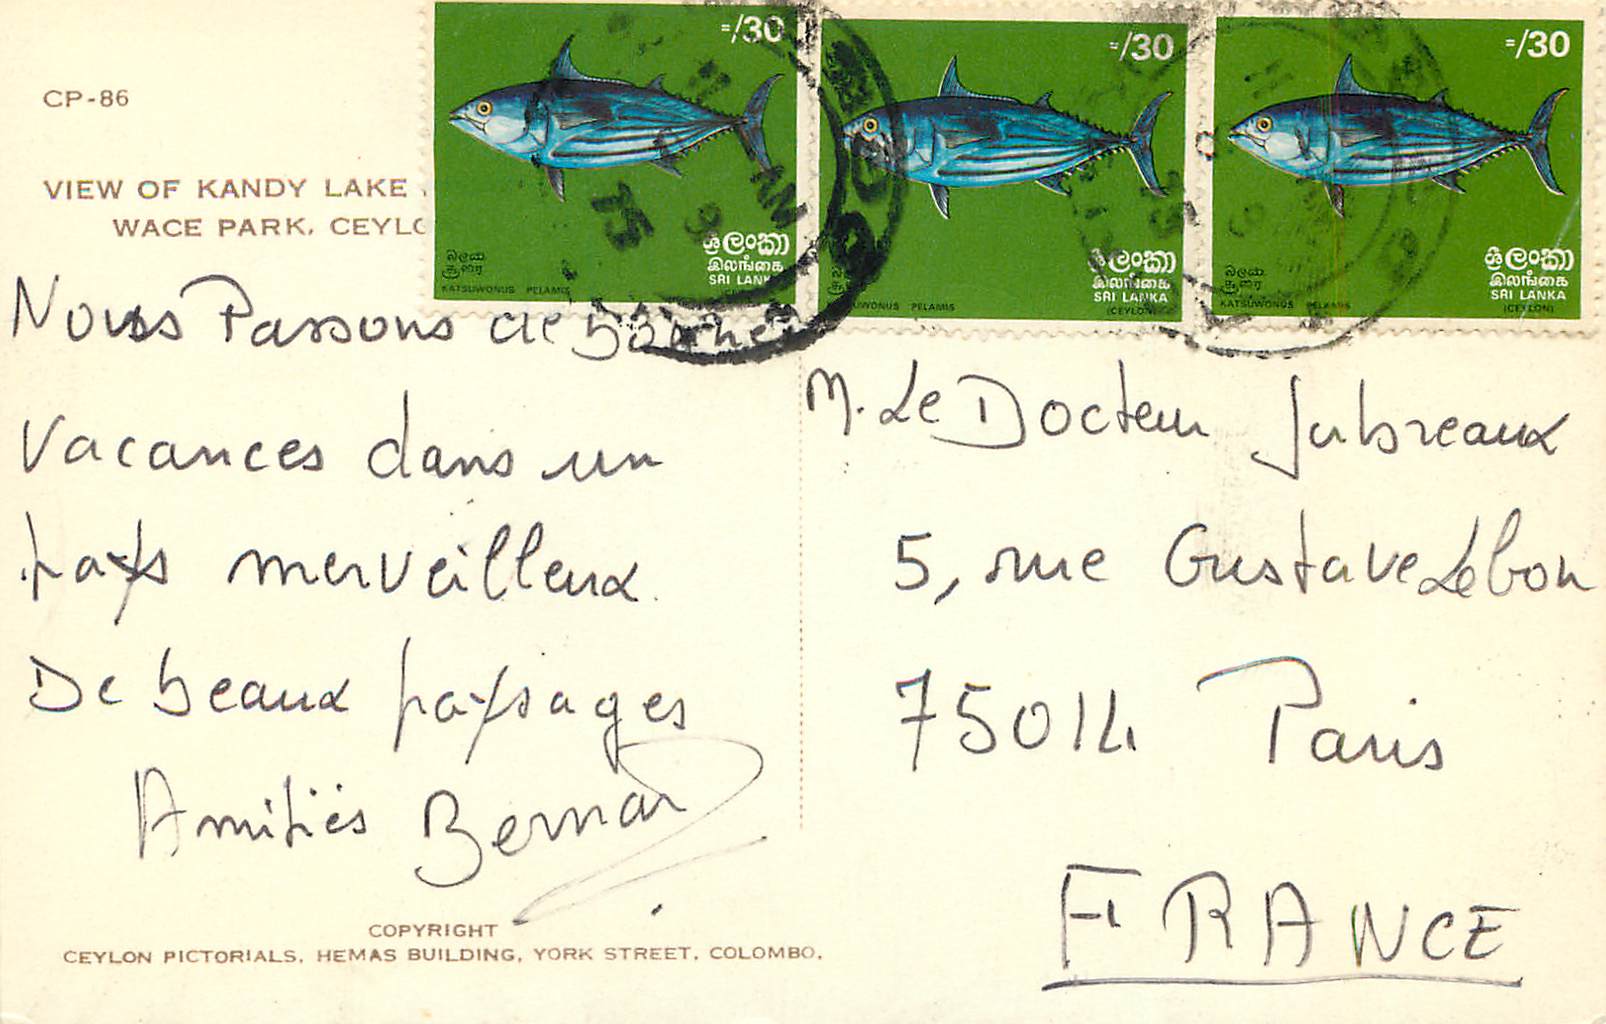 CP-86
VIEW OF KANDY LAKE
WACE PARK, CEYLO
=/30
ශ්‍රී ලංකා
இலங்கை
SRI LANKA
බලයා
சூரை
KATSUWONUS PELAMIS
=/30
ශ්‍රී ලංකා
இலங்கை
SRI LANKA
(CEYLON)
UWONUS PELAMIS
=/30
ශ්‍රී ලංකා
இலங்கை
SRI LANKA
(CEYLON)
බලයා
சூரை
KATSUWONUS PELAMIS
75
Nous Passons de bonnes
Vacances dans un
pays merveilleux.
De beaux paysages
Amitiés Bernard
M. Le Docteur
5, rue Gustave Lebon
75014 Paris
FRANCE
COPYRIGHT
CEYLON PICTORIALS, HEMAS BUILDING, YORK STREET, COLOMBO.